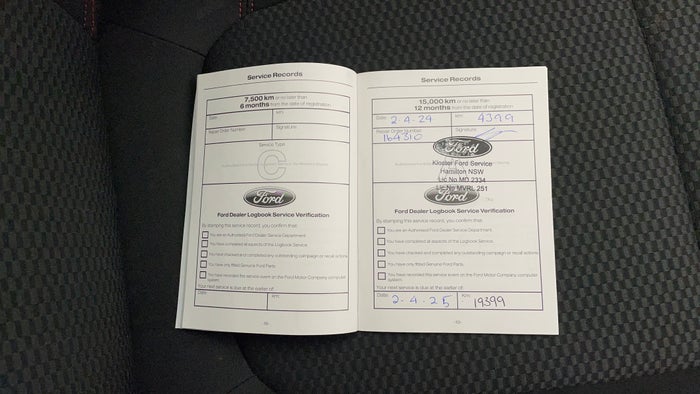 Service Records
7,500 km or no later than
6 months from the date of registration
Date
Km
Repair Order Number
Signature
Service Type
C
Ford
Ford Dealer Logbook Service Verification
By stamping this service record, you confirm that:
You are an Authorised Ford Dealer Service Department.
You have completed all aspects of the Logbook Service.
You have checked and completed any outstanding campaign or recall actions.
You have only fitted Genuine Ford Parts.
You have recorded this service event on the Ford Motor Company computer
system.
Your next service is due at the earlier of:
Date
Km
Service Records
15,000 km or no later than
12 months from the date of registration
Date 2-4-24
Km 4399
Repair Order Number
164310
Signature
Ford
Kloster Ford Service
Hamilton NSW
Lic No MD 2334
Lic No MVRL 251
Ford
Ford Dealer Logbook Service Verification
By stamping this service record, you confirm that:
You are an Authorised Ford Dealer Service Department.
You have completed all aspects of the Logbook Service.
You have checked and completed any outstanding campaign or recall actions.
You have only fitted Genuine Ford Parts.
You have recorded this service event on the Ford Motor Company computer
system.
Your next service is due at the earlier of:
Date 2-4-25
Km 19399